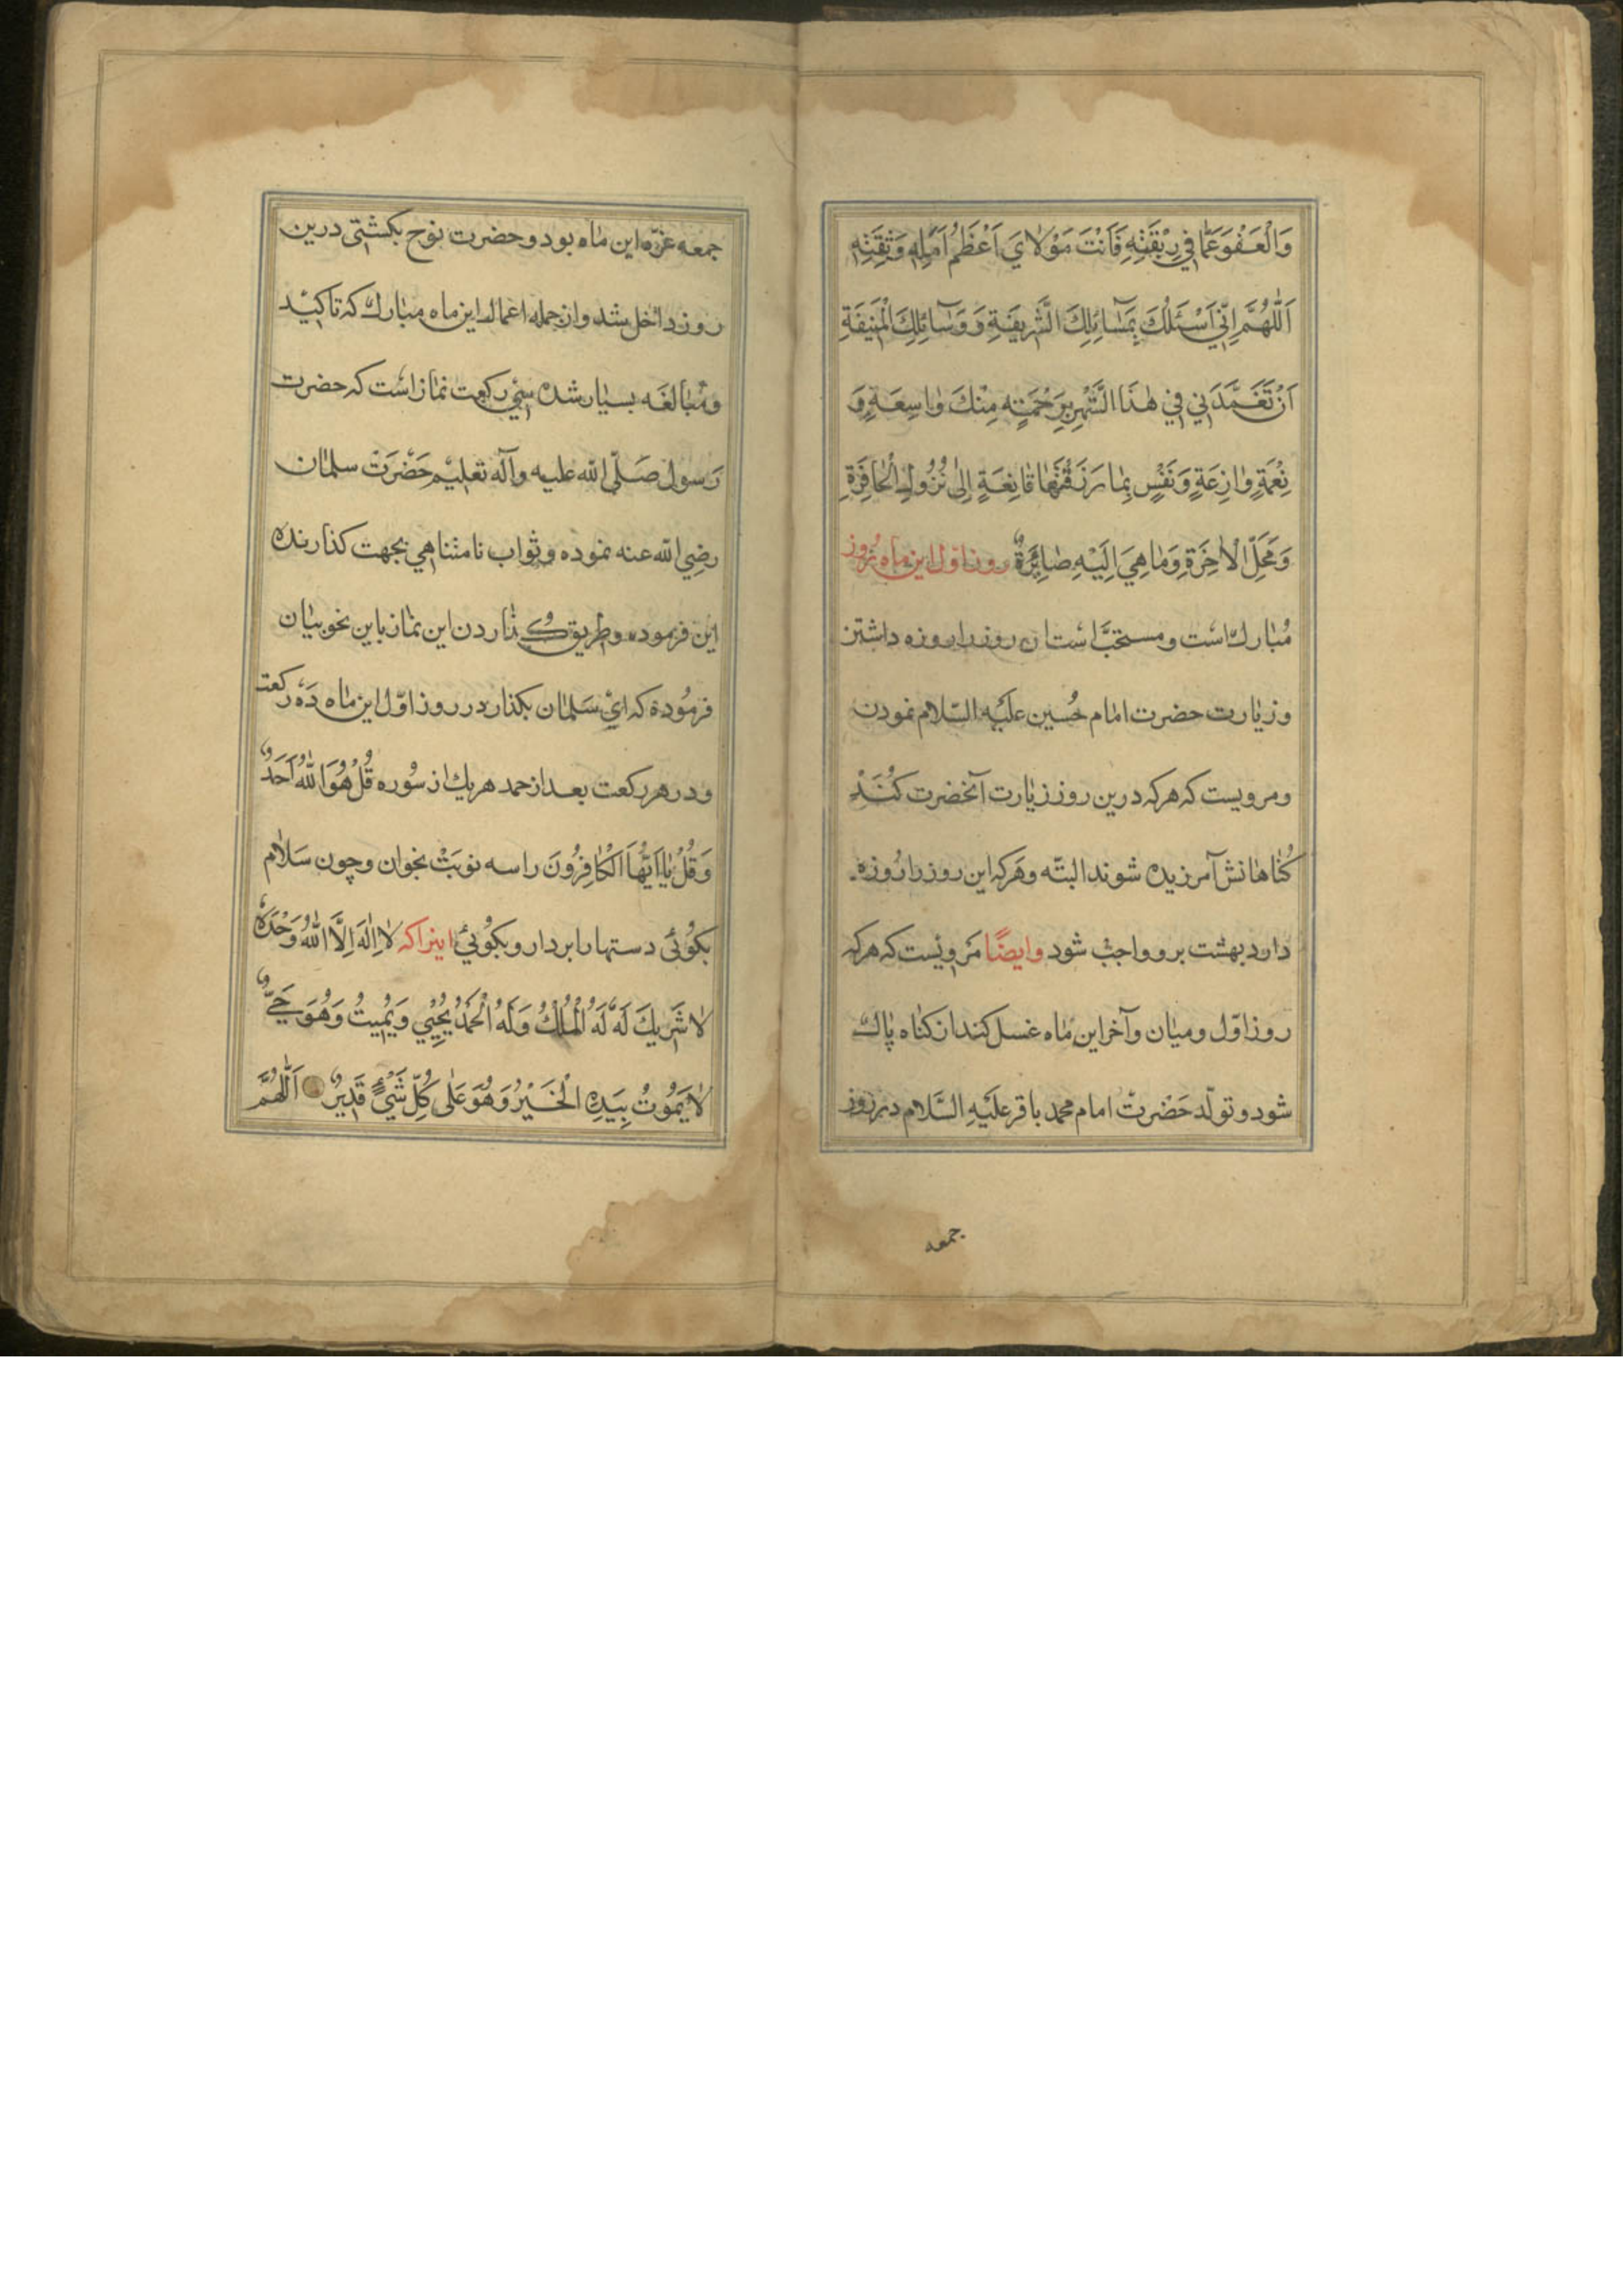 وَالْعَفْوَ عَمَّا فِي رِبْقَتِهِ فَاَنْتَ مَوْلَايَ اَعْظَمُ اَمَلِهِ وَثِقَتِهِ
اَللّٰهُمَّ اِنّي اَسْئَلُكَ بِمَسَائِلِكَ الشَّرِيفَةِ وَ وَسَائِلِكَ الْمُنِيفَةِ
اَنْ تَتَغَمَّدَنِي فِي هٰذَا الشَّهْرِ بِرَحْمَتٍهِ مِنْكَ وٰاسِعَةٍ وَ
نِعْمَةٍ وٰازِعَةٍ وَنَفْسٍ بِمٰا رَزَقْتَهٰا قٰانِعَةٍ اِلىٰ نُزُولِ الْحٰافِرَةِ
وَمَحَلِّ الْاٰخِرَةِ وَمٰا هِيَ اِلَيْهِ صٰائِرَةٌ روز اول این ماه روز
مُبٰارك است و مستحبّ است این روز را روزه داشتن
وزیٰارت حضرت امٰام حُسین علَیه السّلام نمودن
ومرویست که هرکه درین روز زیٰارت آنحضرت کُنَدْ
کُنٰاهٰانش آمرزیده شوند البتّه وهَرکه این روز را رُوزه
دارد بهشت برو واجبْ شود وایضًا مَرویْست که هرکه
روز اوّل و میٰان وآخر این مٰاه غسل کند از کنٰاه پٰاك
شود و تولّد حَضْرتْ امام محمد باقر علَیَهِ السَّلام در روز
جمعه
جمعه غرّه این مٰاه بود و حضرت نوح بکشتی درین
روز داخل شد و از جمله اعمال این ماه مبٰارك که تاکیْد
ومُبٰالغَه بسیٰار شده سي رکعت نمٰاز است که حضرت
رَسول صَلّی الله علیه وآله تعلیْم حَضْرَتْ سلمٰان
رضِی الله عنه نموده و ثواب نامتناهي بجهت کذارنده
این فرموده و طریق کُذٰاردن این نمٰاز باین نحو بیٰان
فرمُوده که ايْ سَلمٰان بکذار در روز اوّل این مٰاه دَه رکعت
ودر هر رکعت بعد از حمد هریك از سُوره قُلْ هُوَ اللّٰهُ اَحَدٌ
وَقُلْ یٰا اَیُّهَا الْکٰافِرُونَ را سه نوبَتْ بخوان وچون سَلٰام
بکوُئی دستها را بردار و بکوُئي اینرا که لٰا اِلٰهَ اِلَّا اللّٰهُ وَحْدَهُ
لٰا شَرِيكَ لَهُ لَهُ الْمُلْكُ وَلَهُ الْحَمْدُ يُحْيِي وَيُمِيتُ وَهُوَ حَيٌّ
لٰا يَمُوتُ بِيَدِهِ الْخَيْرُ وَهُوَ عَلٰى كُلِّ شَيْءٍ قَدِيرٌ اَللّٰهُمَّ